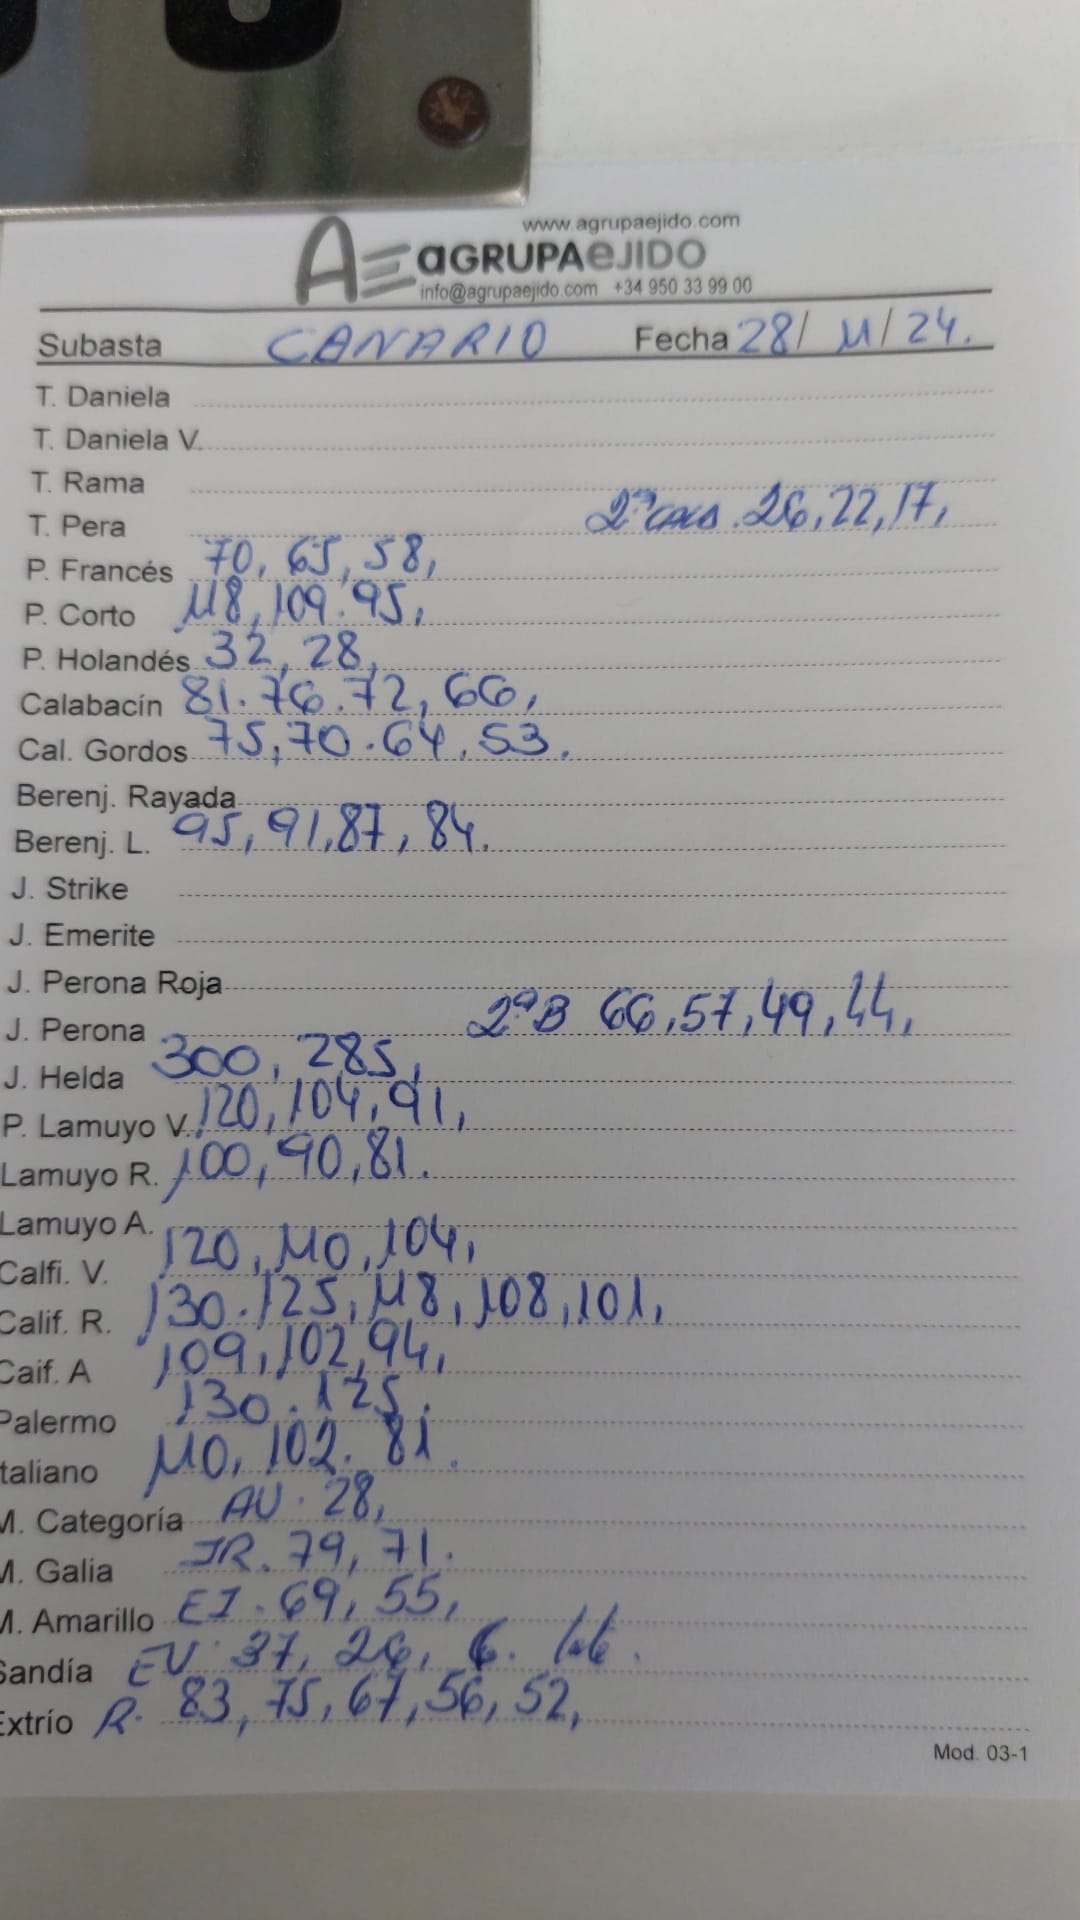 www.agrupaejido.com
AE aGRUPAeJIDO
info@agrupaejido.com +34 950 33 99 00
Subasta CANARIO Fecha 28/ 11/24.
T. Daniela
T. Daniela V.
T. Rama
T. Pera 26,22,17,
P. Francés 70, 65, 58,
P. Corto 118, 109. 95,
P. Holandés 32, 28,
Calabacín 81. 76. 72, 66,
Cal. Gordos 75, 70. 64. 53.
Berenj. Rayada
Berenj. L. 95, 91, 87, 84.
J. Strike
J. Emerite
J. Perona Roja
J. Perona 2ªB 66,57,49,44,
J. Helda 300, 285,
P. Lamuyo V. 120, 104, 91,
Lamuyo R. 100, 90, 81.
Lamuyo A.
Calfi. V. 120, 110, 104,
Calif. R. 130. 125, 118, 108, 101,
Caif. A 109, 102, 94,
Palermo 130. 125.
taliano 110, 102. 81.
M. Categoría AV. 28,
M. Galia JR. 79, 71.
M. Amarillo EJ. 69, 55,
Sandía EV 37, 26, 6.
Extrío R. 83, 75, 67, 56, 52,
Mod. 03-1